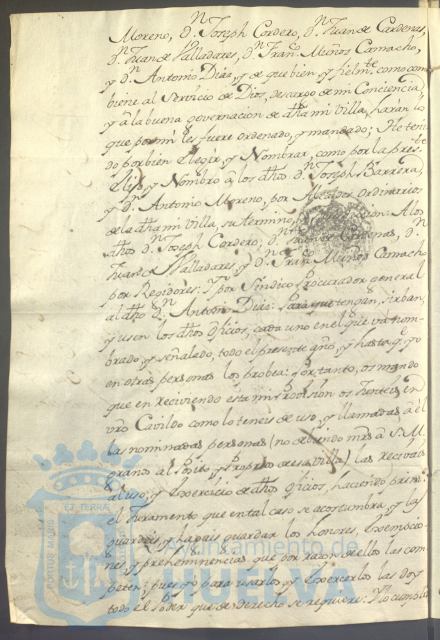 Moreno, Dn. Joseph Cordero, Dn. Juan de Cardenas,
Dn. Juan de Valladares, Dn. Franco. Muños Camacho,
y Dn. Antonio Dias, y de que bien y fielmte. como com
biene al Servicio de Dios, descargo de mi Conciencia,
y a la buena governacion de dha mi Villa, harán lo
que por mi les fuere ordenado, y mandado; He teni
do por bien Elegir, y Nombrar, como por la preste.
Elijo y Nombro a los dhos Dn. Joseph Barrera,
y Dn. Antonio Moreno, por Alcaldes Ordinarios
de la dha mi Villa, su termino, A los
dhos Dn. Joseph Cordero; Dn. Juan de Cardenas, Dn.
Juan de Valladares, y Dn. Franco. Muños Camacho
por Regidores: Y por Sindico Procurador general
al dho Dn. Antonio Dias: Para que tengan, sirban,
y usen los dhos oficios, cada uno en el que va nom
brado, y señalado, todo el presente año, y hasta q. yo
en otras personas los probea: Por tanto, os mando
que en reciviendo esta mi Provision os Junteis en
vro Cavildo como lo teneis de uso, y llamadas a el
las nominadas personas (no debiendo mrs a S.M.
granos al Posito, y Propios de esa Villa) las Recivais
al uso, y Exercicio de dhos oficios, haciendo prim.
el Juramento que en tal caso se acostumbra, y les
guardeis, y hagais guardar los honores, Exempcio
nes, y preheminencias que por razon de ellos les com
peten; pues yo para usarlos, y Exercerlos les doy
todo el Poder que de derecho se requiere: Y lo cumplir
PORTUS MARIS
ET TERRÆ
Ayuntamiento de
HUELVA